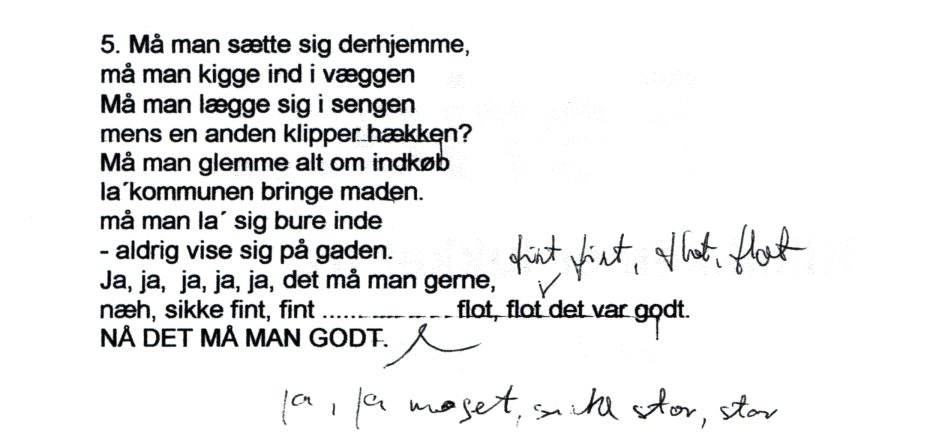 5. Må man sætte sig derhjemme,
må man kigge ind i væggen
Må man lægge sig i sengen
mens en anden klipper hækken?
Må man glemme alt om indkøb
la´kommunen bringe maden.
må man la´ sig bure inde
- aldrig vise sig på gaden.
fint fint, flot, flot
Ja, ja, ja, ja, ja, det må man gerne,
næh, sikke fint, fint .................... flot, flot det var godt.
NÅ DET MÅ MAN GODT.
ja, ja meget, sikke stor, stor